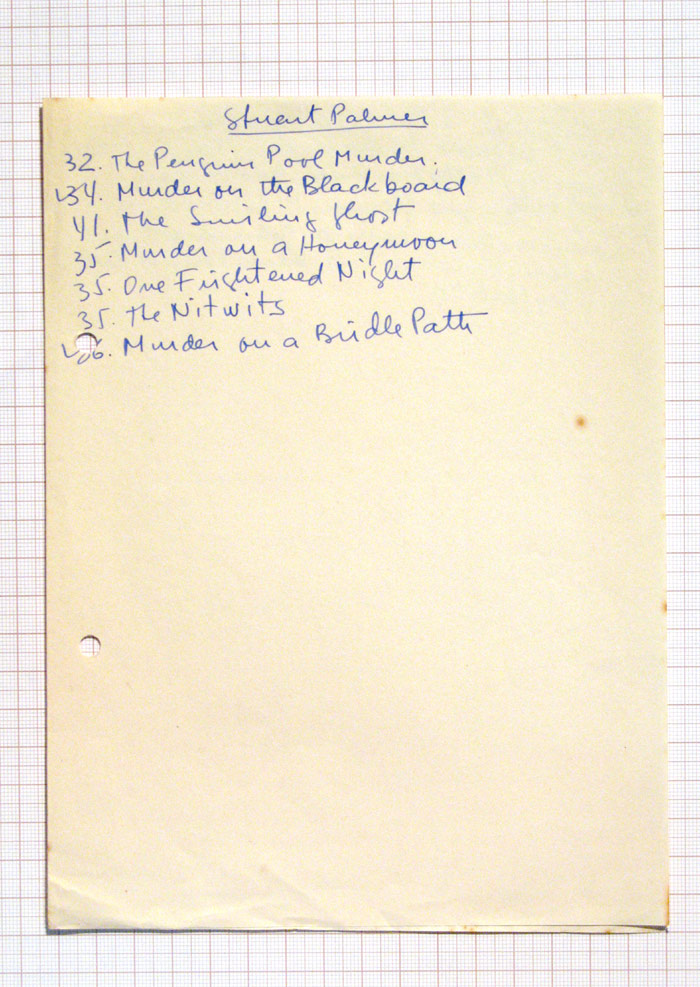 Stuart Palmer
32. The Penguin Pool Murder.
34. Murder on the Blackboard
41. The Smiling Ghost
35. Murder on a Honeymoon
35. One Frightened Night
35. The Nitwits
36. Murder on a Bridle Path